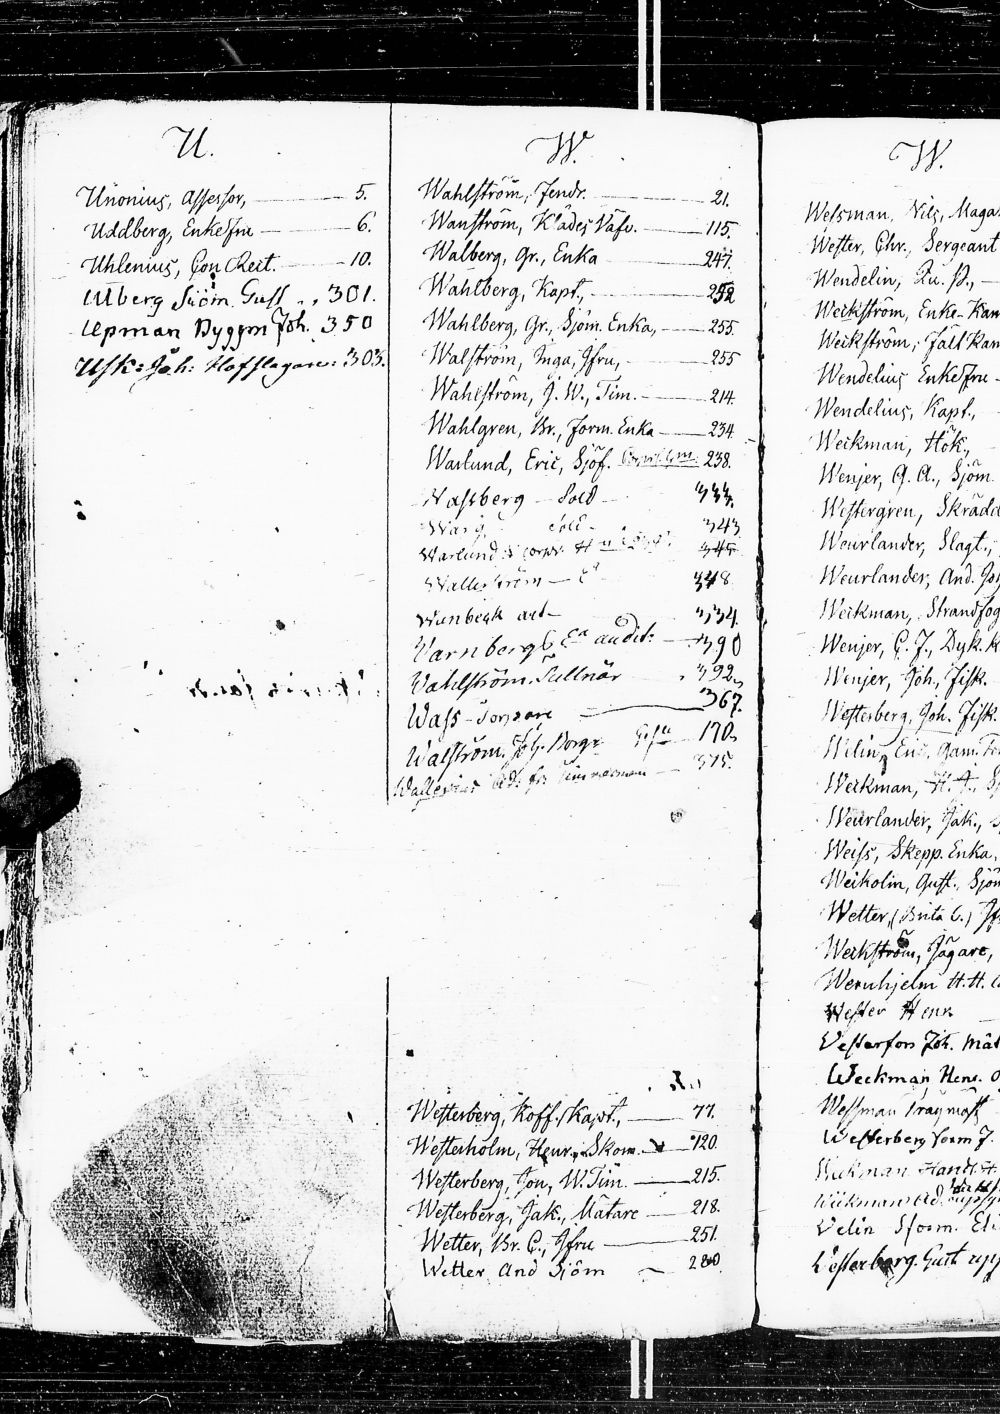 U.
Unonius, Assessor, 5.
Uddberg, Enkefru 6.
Uhlenius, Con Reit. 10.
Ulberg Siöm. Gust 301.
Upman Byggm Joh. 350
Usk: Joh: Hofslagare: 303.
W.
Wahlström, Fendr. 21.
Wanström, Klädes Väfv. 115.
Walberg, Gr., Enka 247.
Wahlberg, Kapt., 252
Wahlberg, Gr., Sjöm. Enka, 255.
Walström, Inga, Jfru, 255
Wahlström, J. W., Tim. 214.
Wahlgren, Br., Form. Enka 234.
Warlund, Eric, Sjöf. 238.
Wassberg Sold 333.
Warg Sold 343
Warlund 345
Wallström 348.
Wanbeck art 334.
Varnberg audit: 390
Vahlström. Tullnär 392.
Wass 367.
Walström. Joh. Borge 170.
Wallenius Timmerman 375.
Westerberg, Koff. Kapt., 77.
Westerholm, Henr., Skom. 120.
Westerberg, Jon, W. Tim. 215.
Westerberg, Jak., Mätare 218.
Wetter, Br. C., Jfru 251.
Wetter And Siöm 280
W.
Welsman, Nils, Maga
Wester, Chr., Sergeant
Wendelin,
Weckström, Enke-Kam
Weckström, Fält Kam
Wendelius Enkefru
Wendelius, Kapt.,
Weckman, Hök.,
Wenjer, G. A., Sjöm.
Westergren, Skrädd
Weurlander, Slagt.,
Weurlander, And. Joh
Weckman, Strandfog
Wenjer, C. F., Dyk. K
Wenjer, Joh., Fisk.
Westerberg, Joh. Fisk.
Welin, Eric, Gam.
Weckman, H. A., Sj
Weurlander, Jak., S
Weiss, Skepp. Enka,
Weikolin, Gust., Sjöm
Wetter, (Brita C.) Jf
Weckström, Jägare,
Wernhjelm H. H.
Wester Henr.
Vesterfors Joh. Mät
Weckman, Henr.
Wessman
Westerberg Form J.
Wickman Handl. H.
Weckman
Velin Sjom. Eli
Westerberg. Gust upp